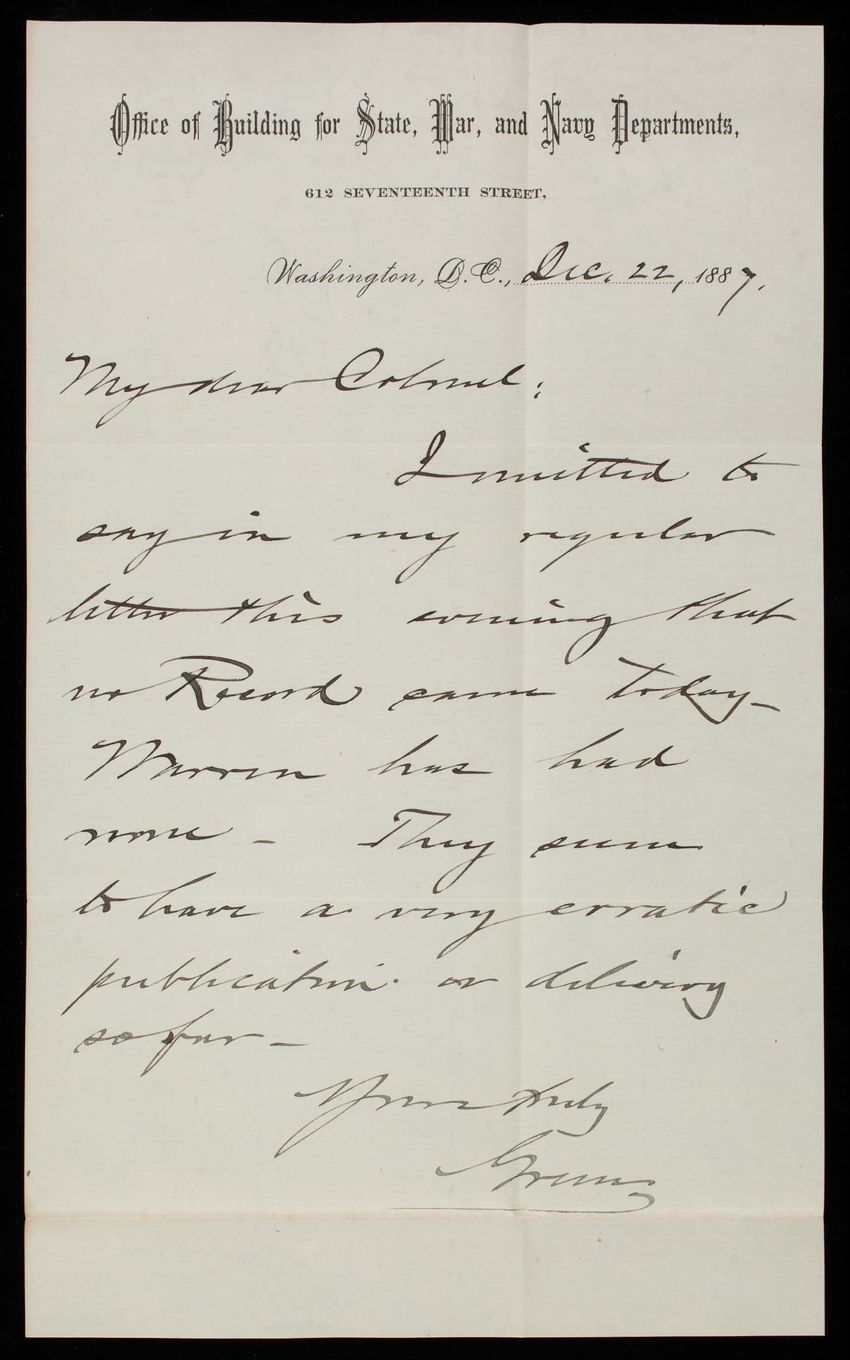 Office of Building for State, War, and Navy Departments,
612 SEVENTEENTH STREET,
Washington, D.C., Dec. 22, 1887.
My dear Colonel:
I omitted to
say in my regular
letter this evening that
no Record came today—
Warren has had
none — They seem
to have a very erratic
publication or delivery
so far —
Yours truly
Green